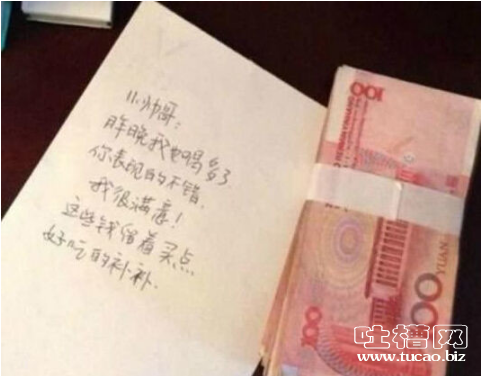 小帅哥：
昨晚我也喝多了
你表现的不错，
我很满意！
这些钱留着买点
好吃的补补.
100
YUAN
100
100
吐槽网
www.tucao.biz